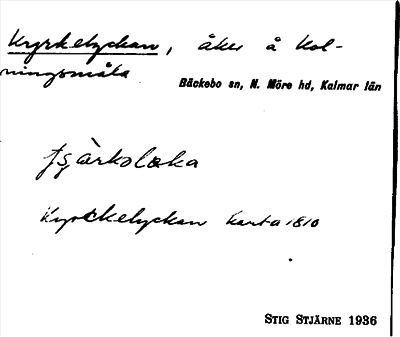 Kyrkelyckan, åker å Kol-
ningsmåla
Bäckebo sn, N. Möre hd, Kalmar län
Kyrckelyckan Karta 1810
STIG STJÄRNE 1936